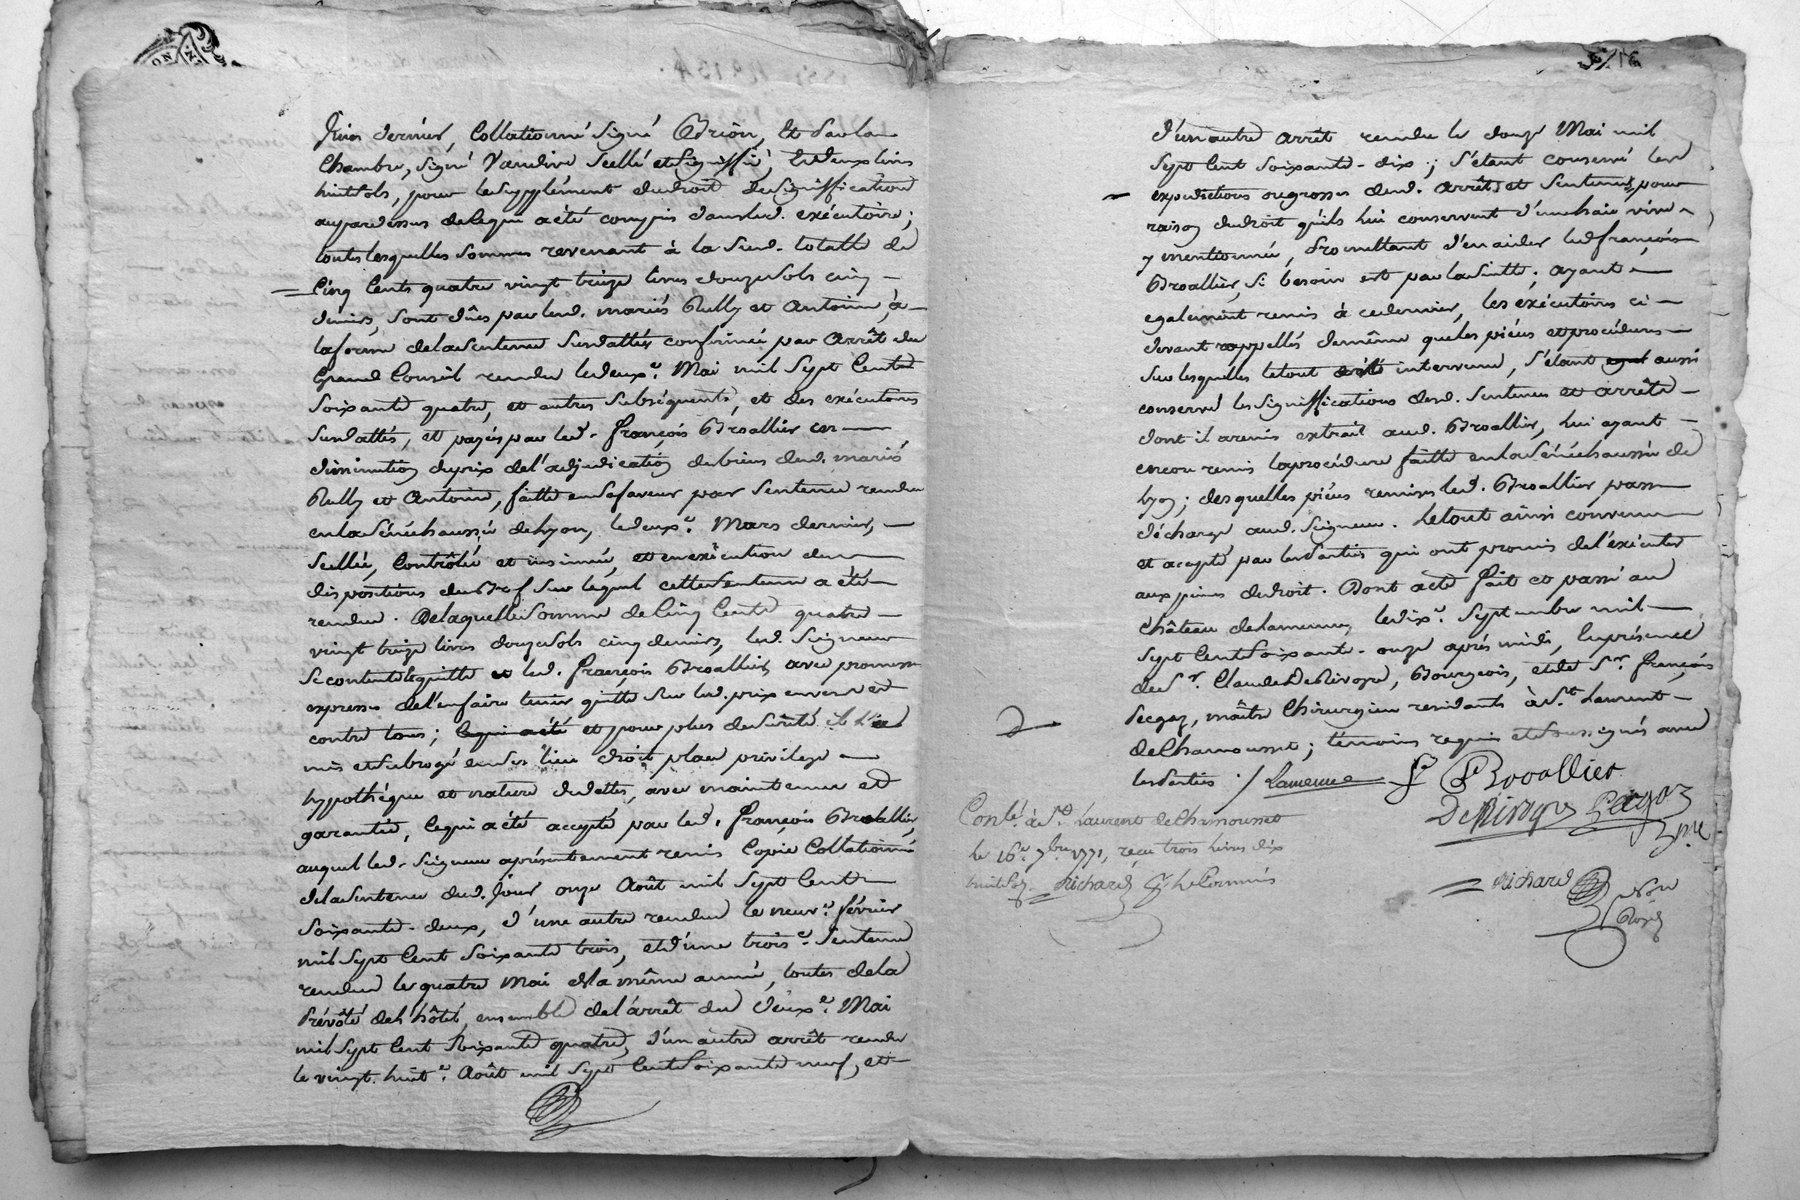 Juin dernier, Collationné signé Brion, Et par la
Chambre, signé Vandive scellé et signiffié, Et deux livres
huit sols, pour le supplément du droit de signiffication
au pardessus de lequi a été compris dans led. exécutoire;
toutes lesquelles sommes revenant à la susd. totalle de
Cinq Cents quatre vingt treize livres douze sols cinq
deniers, sont dûes par lesd. mariés Rully et Antoine, à
la forme de la sentence susdattée confirmée par Arrêt du
Grand Conseil rendu le deuxe. Mai mil sept Cent
soixante quatre, et autres subséquents, et des exécutoires
susdattés, et payés par led. françois Broallier en
diminution du prix de l'adjudication des biens desd. mariés
Rully et Antoine, faitte en sa faveur par sentence rendue
en la Sénéchaussée de Lyon, le deuxe. Mars dernier,
scellée, Contrôlée et insinuée, et en exécution des
dispositions du Bref sur lequel cette sentence a été
rendue. De laquelle somme de Cinq Cents quatre
vingt treize livres douze sols cinq deniers, led. Seigneur
se contente & quitte led. françois Broallier, avec promesse
expresse de l'en faire tenir quitte sur led. prix envers et
contre tous; lequi a été et pour plus de sûreté il l'a
mis et subrogé en ses lieu droit place privilege
hypothéque et nature de dettes, avec maintenue et
garantie, lequi a été accepté par led. françois Broallier,
auquel led. Seigneur a présentement remis Copie Collationné
de la sentence dud. jour, onze Août mil sept Cent
soixante-deux, d'une autre rendue le neuve. février
mil sept Cent soixante trois, et d'une troise. sentence
rendue le quatre Mai de la même année, toutes de la
Prévôté de l'hôtel, ensemble de l'arrêt du deuxe. Mai
mil sept Cent soixante quatre, d'un autre arrêt rendu
le vingt-huite. Août mil sept Cent soixante neuf, et
d'un autre arrêt rendu le douze Mai mil
sept Cent soixante-dix; s'étant conservé les
expéditions ou grosses desd. arrêts et sentences, pour
raison du droit qu'ils lui conservent d'une haie vive
y mentionnée, promettant d'en aider led. françois
Broallier, si besoin est par la suitte; ayant
egalement remis à ce dernier, les exécutoires ci
devant rappellés de même que les piéces et procédures
sur lesquelles le tout intervenu, s'étant aussi
conservé les signiffications desd. sentences et arrêts
dont il a remis extrait aud. Broallier, lui ayant
encore remis la procédure faitte en la Sénéchaussée de
Lyon; desquelles piéces remises led. Broallier passe
décharge aud. Seigneur. Le tout ainsi convenu
et accepté par les Parties qui ont promis de l'exécuter
aux peines de droit. Dont acte fait et passé au
Château de Lamenue, le dixe. Septembre mil
sept Cent soixante-onze après midi, En présence
de Sr. Claude DeRivoyre, Bourgeois, et de Sr. françois
Pecgoz, maître Chirurgien residants à St. Laurent
de Chamousset; témoins requis et soussignés avec
les parties ./ Lamenue fs Broallier
DeRivoyre Pecgoz
Contlé. à St. Laurent de Chamousset
le 16e. 7bre 1771, reçu trois livres dix
huit s. Richard
Richard
Nore
Royl